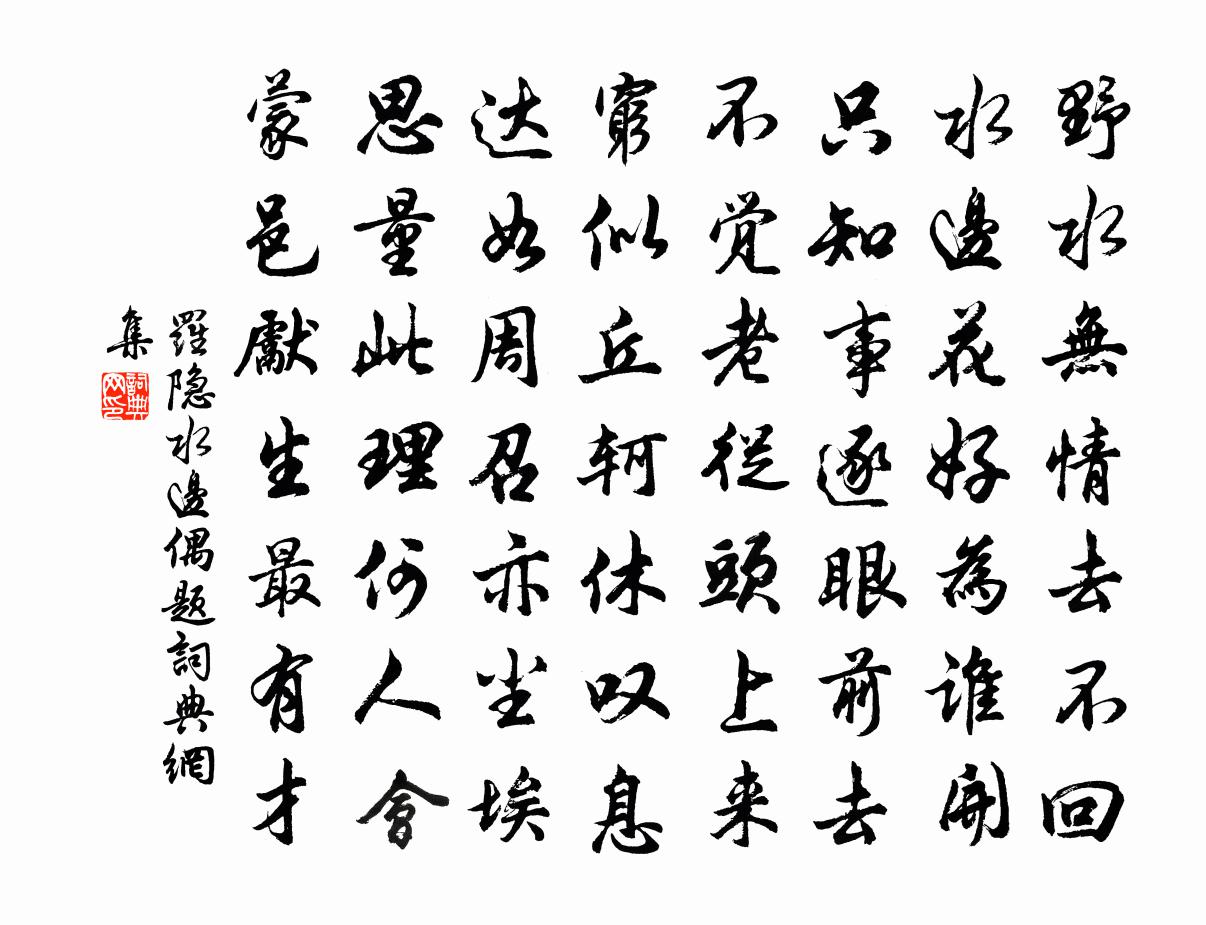 野水無情去不回
水邊花好為誰開
只知事逐眼前去
不觉老從頭上来
窮似丘轲休叹息
达如周召亦尘埃
思量此理何人會
蒙邑獻生最有才
羅隐水邊偶题詞典網
集
詞典
网印